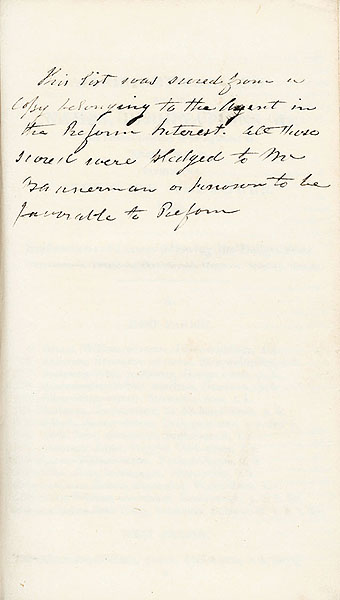 This List was scored from a
Copy belonging to the Agent in
the Reform Interest. All those
scored were pledged to Mr
Bannerman or known to be
favorable to Reform